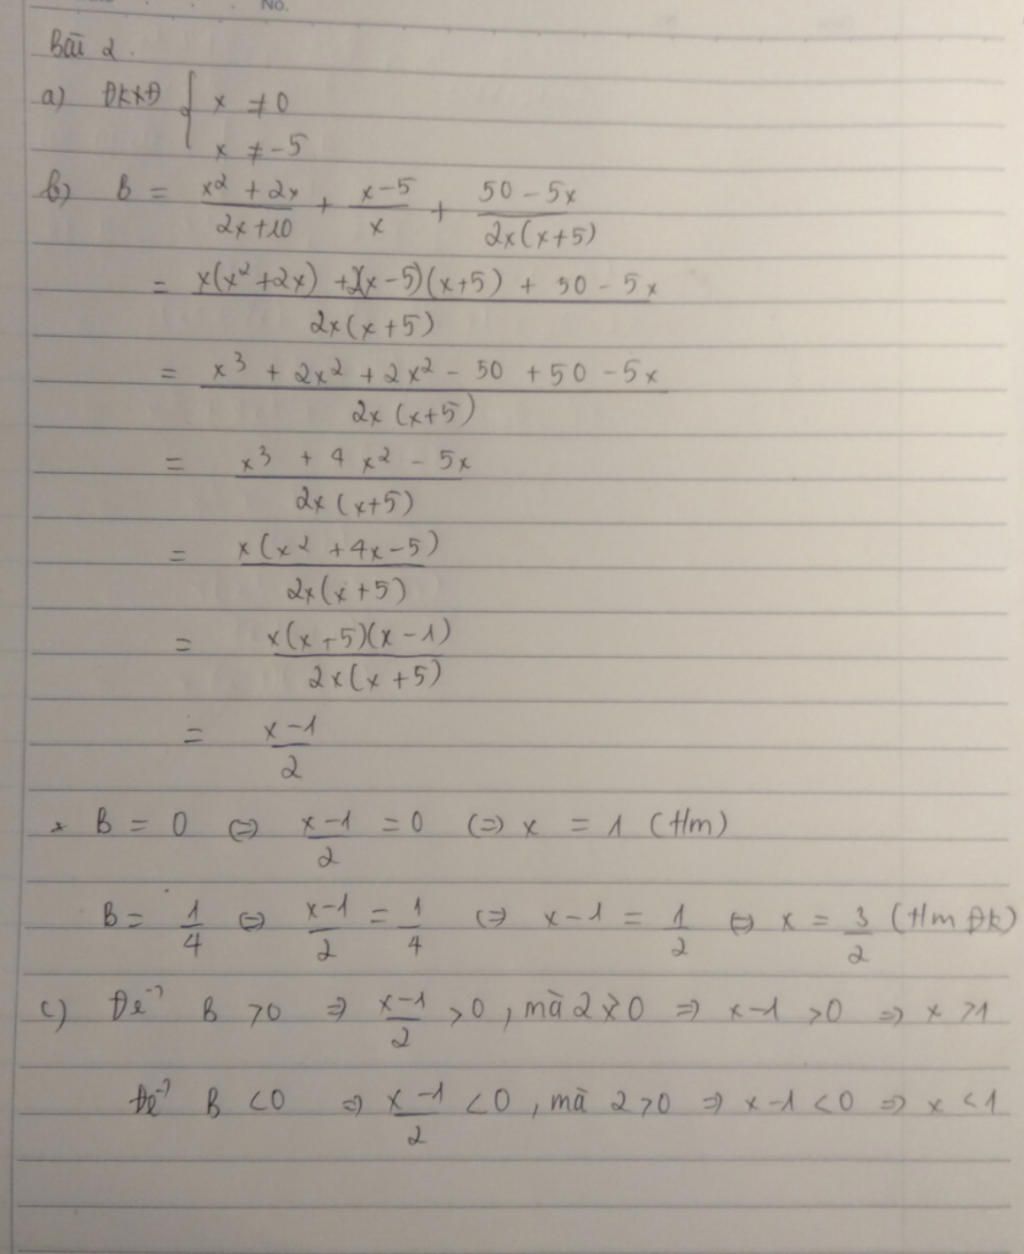 No.
Bài 2.
a) ĐKXĐ { x ≠ 0
x ≠ -5
b) B = (x² + 2x)/(2x+10) + (x-5)/x + (50 - 5x)/(2x(x+5))
= (x(x²+2x) + 2(x-5)(x+5) + 50 - 5x)/(2x(x+5))
= (x³ + 2x² + 2x² - 50 + 50 - 5x)/(2x(x+5))
= (x³ + 4x² - 5x)/(2x(x+5))
= (x(x² + 4x - 5))/(2x(x+5))
= (x(x+5)(x-1))/(2x(x+5))
= (x-1)/2
* B = 0 ⇔ (x-1)/2 = 0 ⇔ x = 1 (t/m)
B = 1/4 ⇔ (x-1)/2 = 1/4 ⇔ x-1 = 1/2 ⇔ x = 3/2 (t/m ĐK)
c) Để B > 0 ⇒ (x-1)/2 > 0, mà 2 > 0 ⇒ x-1 > 0 ⇒ x > 1
Để B < 0 ⇒ (x-1)/2 < 0, mà 2 > 0 ⇒ x-1 < 0 ⇒ x < 1